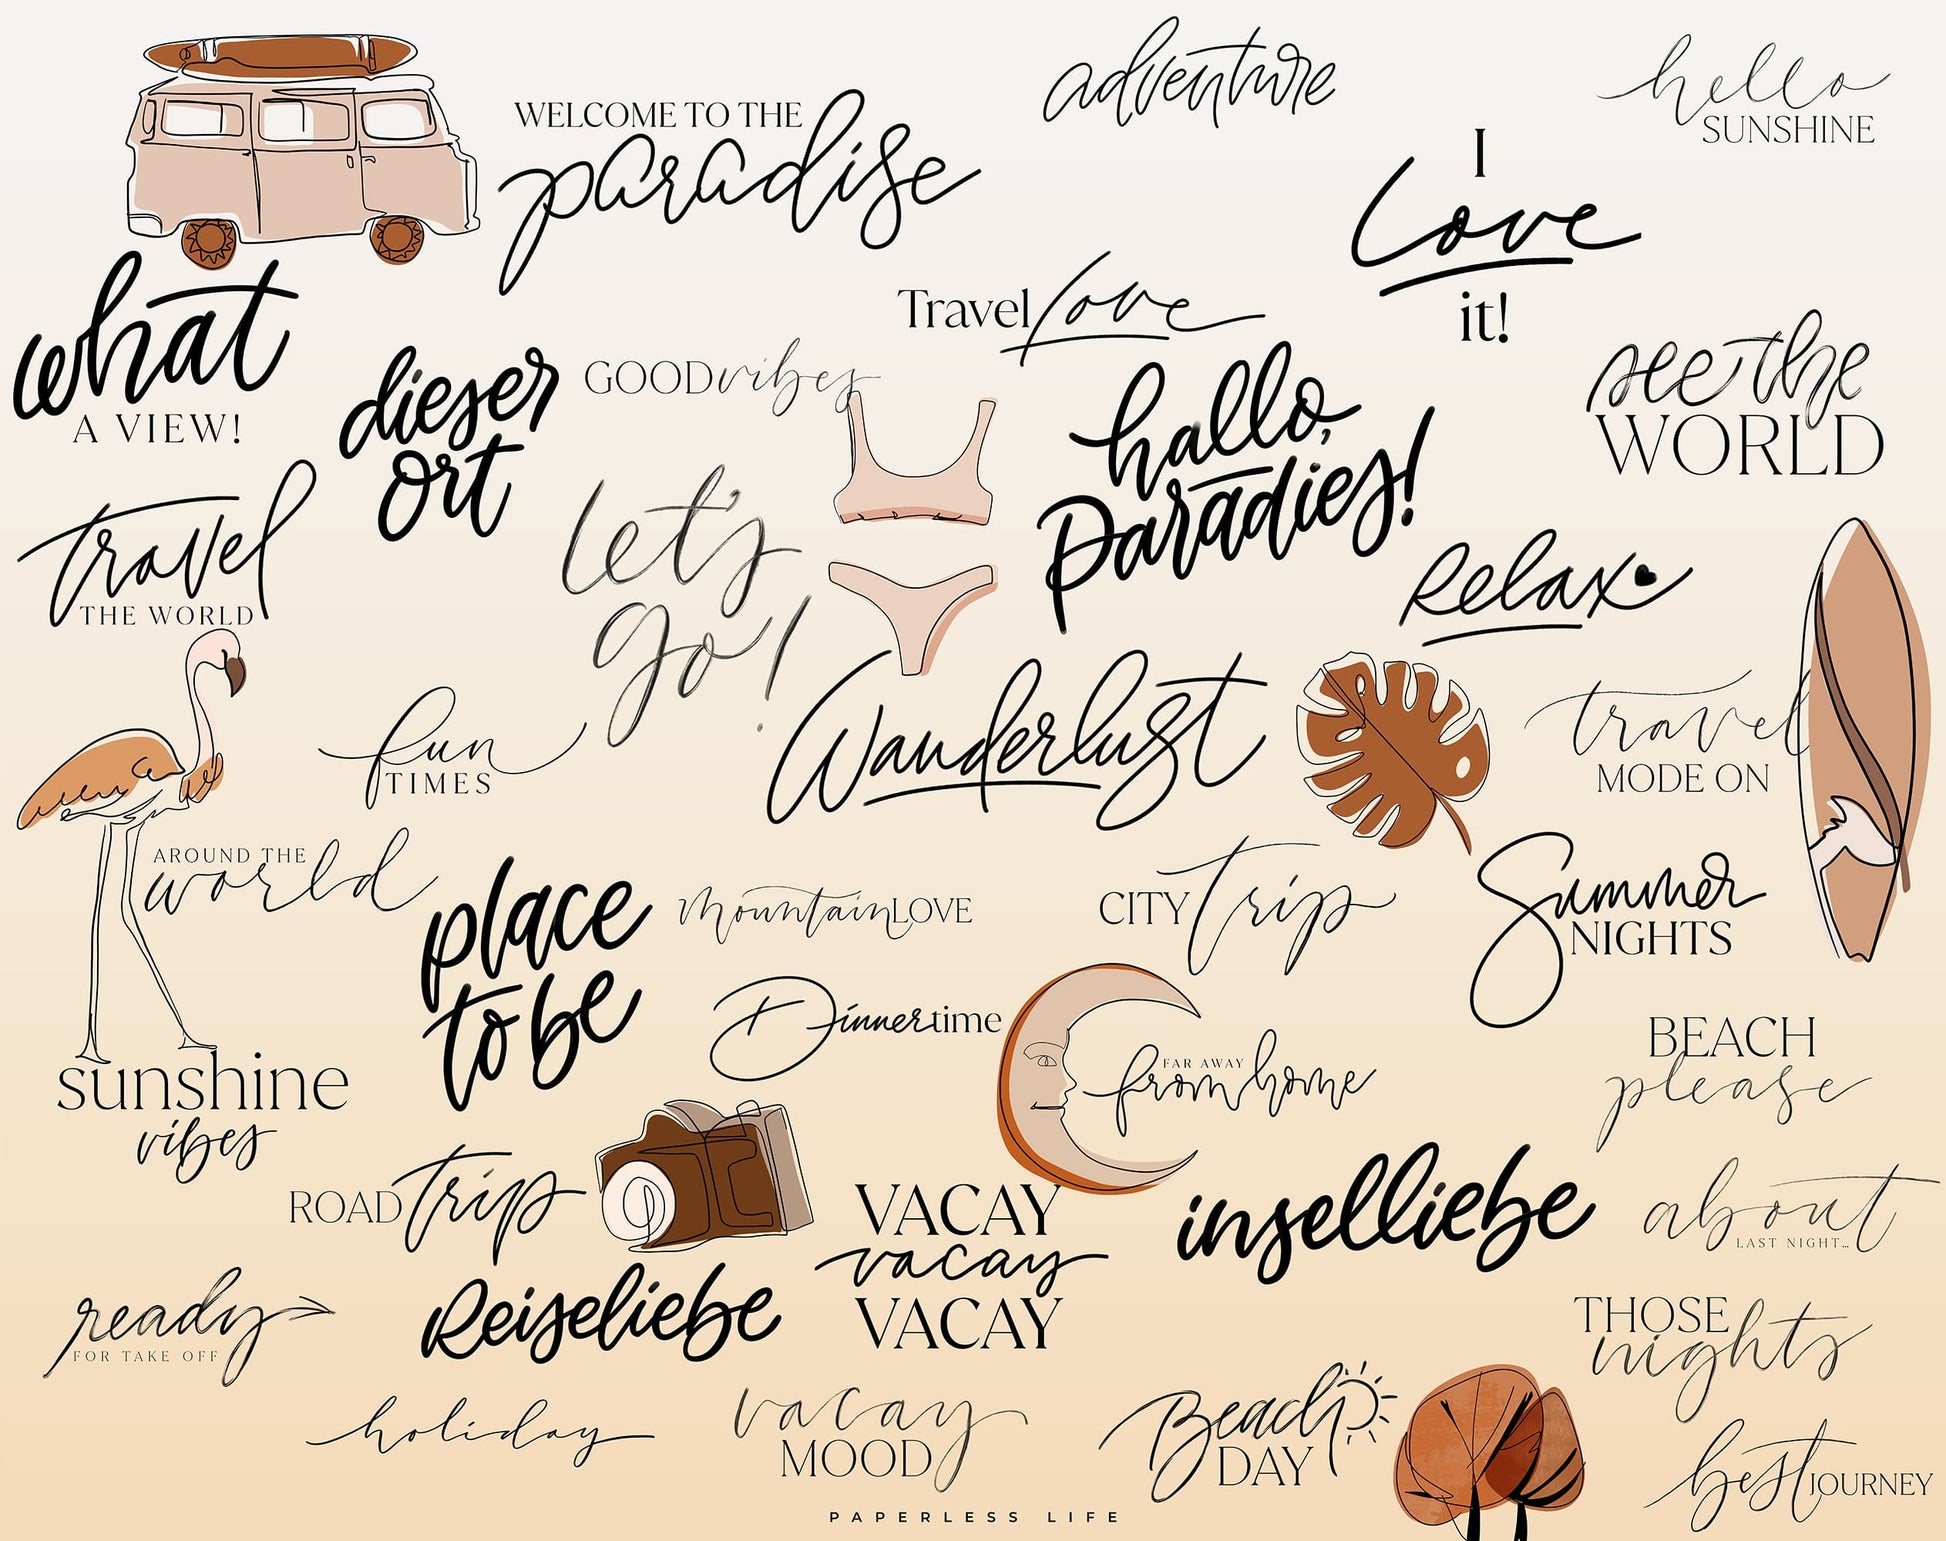 adventure
hello
SUNSHINE
WELCOME TO THE
paradise
I
love
it!
what
A VIEW!
Travel love
dieser
ort
GOOD vibes
hallo,
Paradies!
see the
WORLD
travel
THE WORLD
let's
go!
Relax
Wanderlust
fun
TIMES
travel
MODE ON
AROUND THE
world
place
to be
mountain LOVE
CITY trip
Summer
NIGHTS
Dinnertime
FAR AWAY
from home
BEACH
please
sunshine
vibes
ROAD trip
VACAY
vacay
VACAY
inselliebe
about
LAST NIGHT...
ready
FOR TAKE OFF
Reiseliebe
THOSE
nights
holiday
vacay
MOOD
Beach
DAY
best JOURNEY
PAPERLESS LIFE